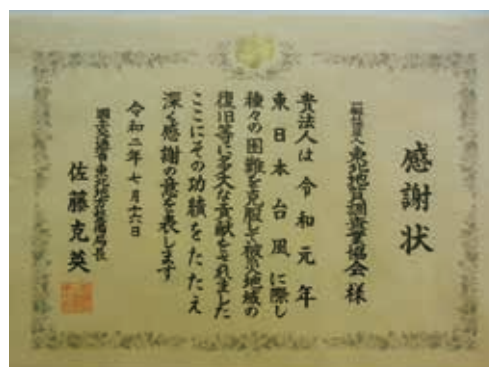 感謝状
一般社団法人 東北地質調査業協会 様
貴法人は令和元年
東日本台風に際し
種々の困難を克服し被災地域の
復旧等に多大な貢献をされました
ここにその功績をたたえ
深く感謝の意を表します
令和二年七月十六日
国土交通省東北地方整備局長
佐藤克英